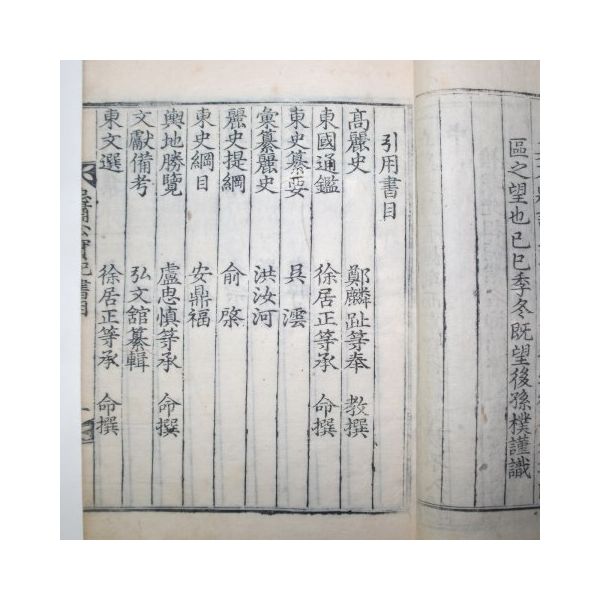 區之望也己巳季冬既望後孫樸謹識
引用書目
高麗史 鄭麟趾等奉 教撰
東國通鑑 徐居正等承 命撰
東史纂要 吳澐
彙纂麗史 洪汝河
麗史提綱 俞棨
東史綱目 安鼎福
輿地勝覽 盧思慎等承 命撰
文獻備考 弘文舘纂輯
東文選 徐居正等承 命撰
實記 書目